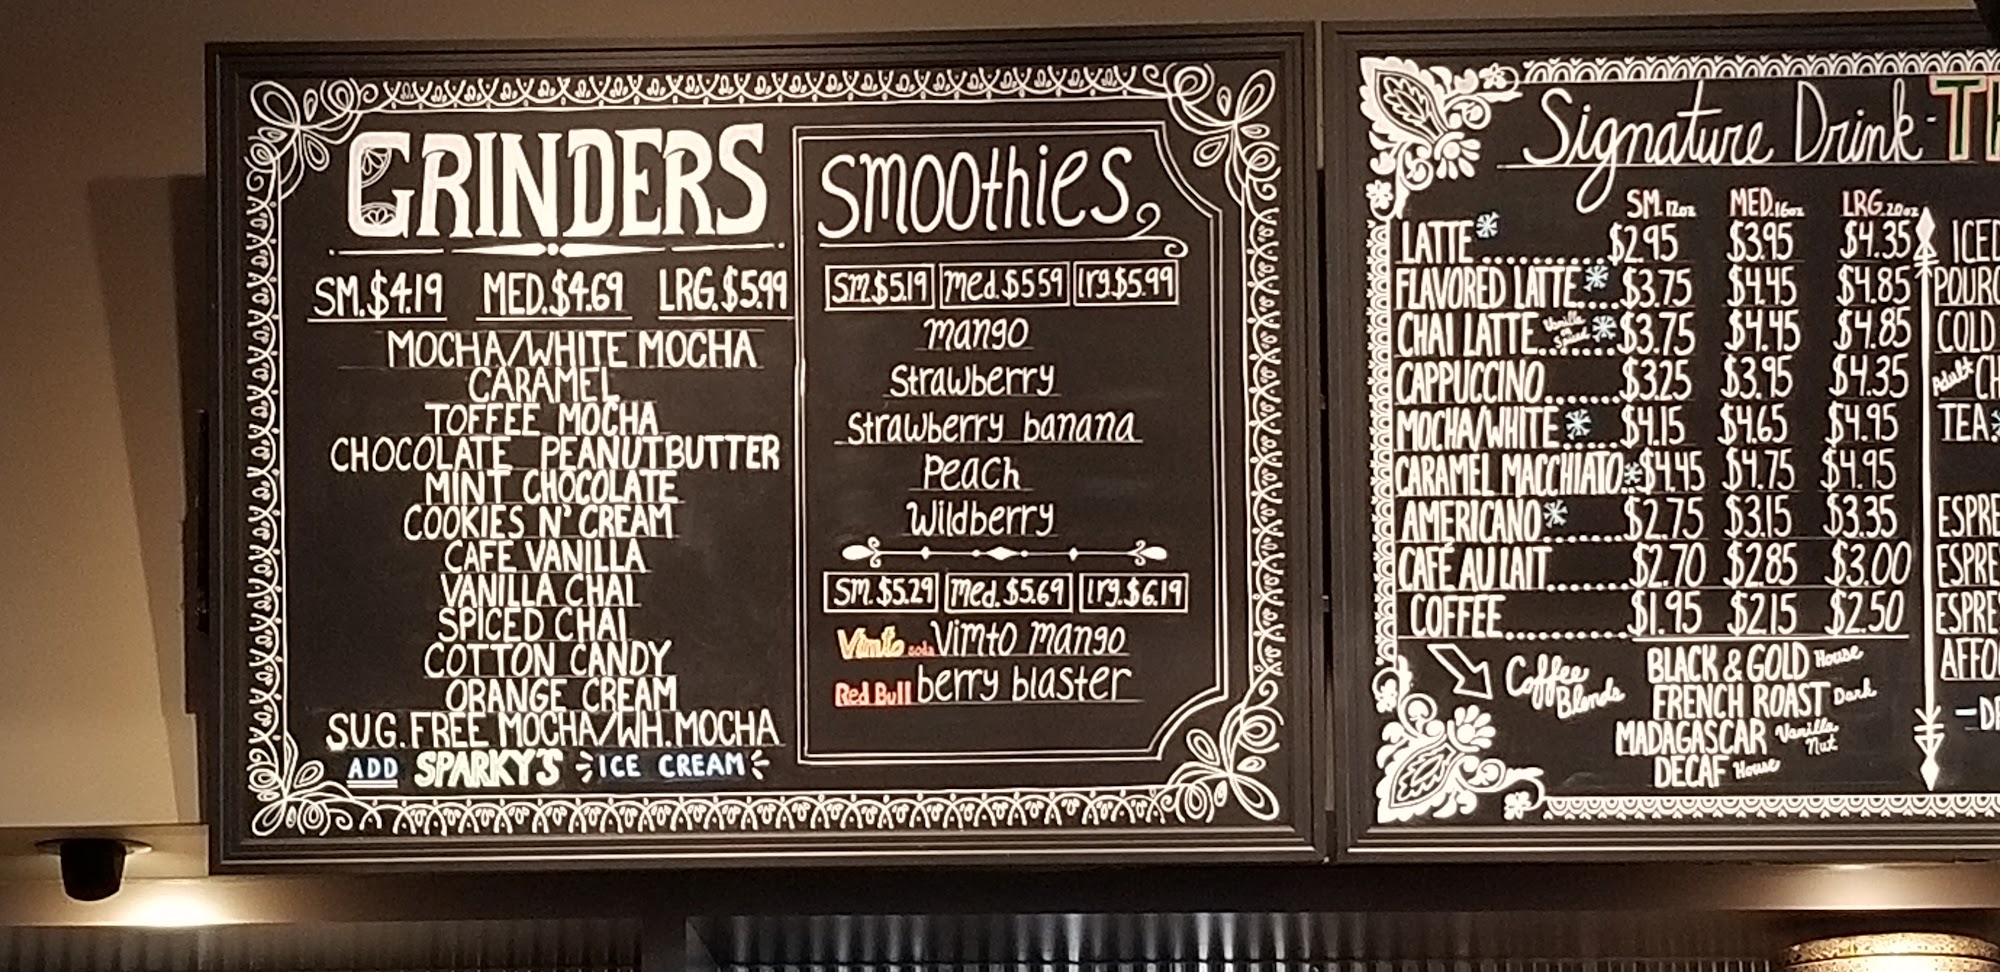 GRINDERS
SM.$4.19 MED.$4.69 LRG.$5.99
MOCHA/WHITE MOCHA
CARAMEL
TOFFEE MOCHA
CHOCOLATE PEANUTBUTTER
MINT CHOCOLATE
COOKIES N' CREAM
CAFE VANILLA
VANILLA CHAI
SPICED CHAI
COTTON CANDY
ORANGE CREAM
SUG.FREE MOCHA/WH.MOCHA
ADD SPARKY'S ICE CREAM
Smoothies
Sm.$5.19 med.$5.59 lrg.$5.99
mango
Strawberry
Strawberry banana
Peach
Wildberry
Sm.$5.29 med.$5.69 lrg.$6.19
Vimto soda Vimto mango
Red Bull berry blaster
Signature Drink-
SM.12oz MED.16oz LRG.20oz
LATTE* $2.95 $3.95 $4.35
FLAVORED LATTE* $3.75 $4.45 $4.85
CHAI LATTE Vanilla or Spiced * $3.75 $4.45 $4.85
CAPPUCCINO $3.25 $3.95 $4.35
MOCHA/WHITE* $4.15 $4.65 $4.95
CARAMEL MACCHIATO* $4.45 $4.75 $4.95
AMERICANO* $2.75 $3.15 $3.35
CAFÉ AU LAIT $2.70 $2.85 $3.00
COFFEE $1.95 $2.15 $2.50
Coffee Blends
BLACK & GOLD House
FRENCH ROAST Dark
MADAGASCAR Vanilla Nut
DECAF House
ICED
COLD
Adult
TEA*